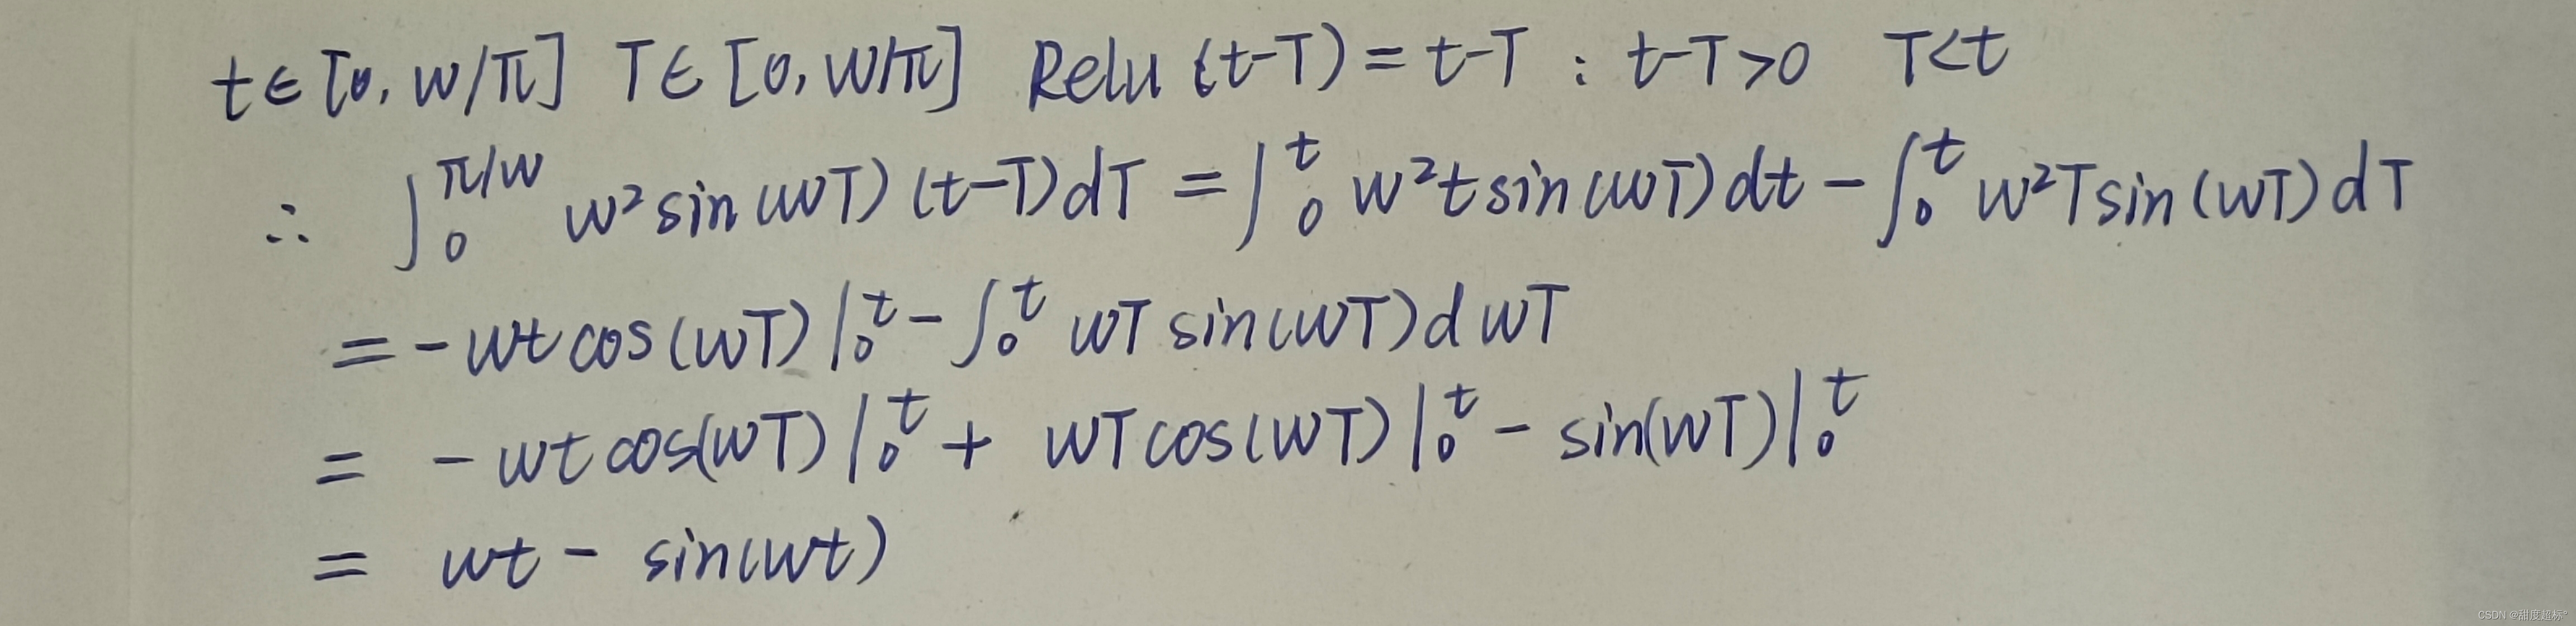 t∈[0, w/π] T∈[0, w/π] Relu (t-T) = t-T : t-T>0 T<t
∴ ∫₀^{π/w} w²sin(wT)(t-T)dT = ∫₀^t w²tsin(wT)dt - ∫₀^t w²Tsin(wT)dT
= -wtcos(wT)|₀^t - ∫₀^t wTsin(wT)dwT
= -wtcos(wT)|₀^t + wTcos(wT)|₀^t - sin(wT)|₀^t
= wt - sin(wt)
CSDN @甜度超标°